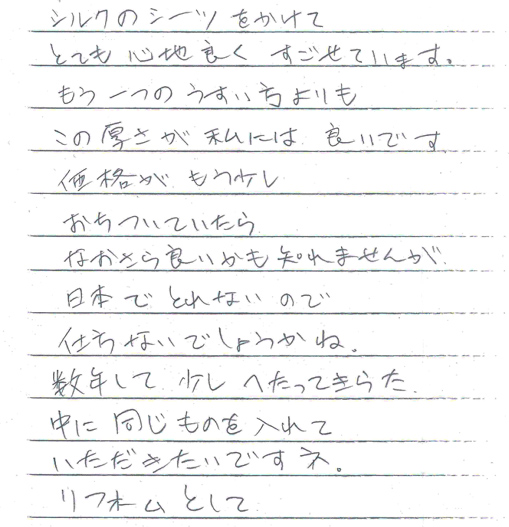 シルクのシーツをかけて
とても心地良く すごせています。
もう一つの うすい方よりも
この厚さが 私には 良いです
価格が もう少し
おちついていたら
なおさら良いかも知れませんが
日本で とれないので
仕方ないでしょうかね。
数年して 少し へたってきらた
中に 同じものを 入れて
いただきたいですネ。
リフォーム として